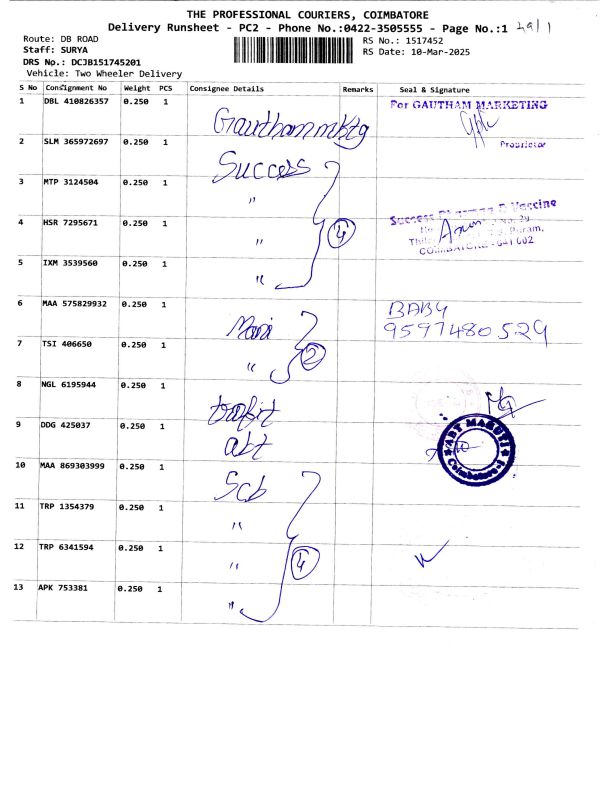 THE PROFESSIONAL COURIERS, COIMBATORE
Delivery Runsheet - PC2 - Phone No.:0422-3505555 - Page No.:1
Route: DB ROAD
RS No.: 1517452
Staff: SURYA
RS Date: 10-Mar-2025
DRS No.: DCJB151745201
Vehicle: Two Wheeler Delivery
S No Consignment No Weight PCS Consignee Details Remarks Seal & Signature
1 DBL 410826357 0.250 1 Gauthammktg For GAUTHAM MARKETING
Proprietor
2 SLM 365972697 0.250 1 Success
3 MTP 3124504 0.250 1 "
Success Pharma & Vaccine
4 HSR 7295671 0.250 1 " 4
COIMBATORE - 641 002
5 IXM 3539560 0.250 1 "
6 MAA 575829932 0.250 1 Mani BABY
9597480529
7 TSI 406650 0.250 1 " 2
8 NGL 6195944 0.250 1
9 DDG 425037 0.250 1 abt ABT MARUTI
Coimbatore
10 MAA 869303999 0.250 1 Scb
11 TRP 1354379 0.250 1 "
12 TRP 6341594 0.250 1 " 4
13 APK 753381 0.250 1 "